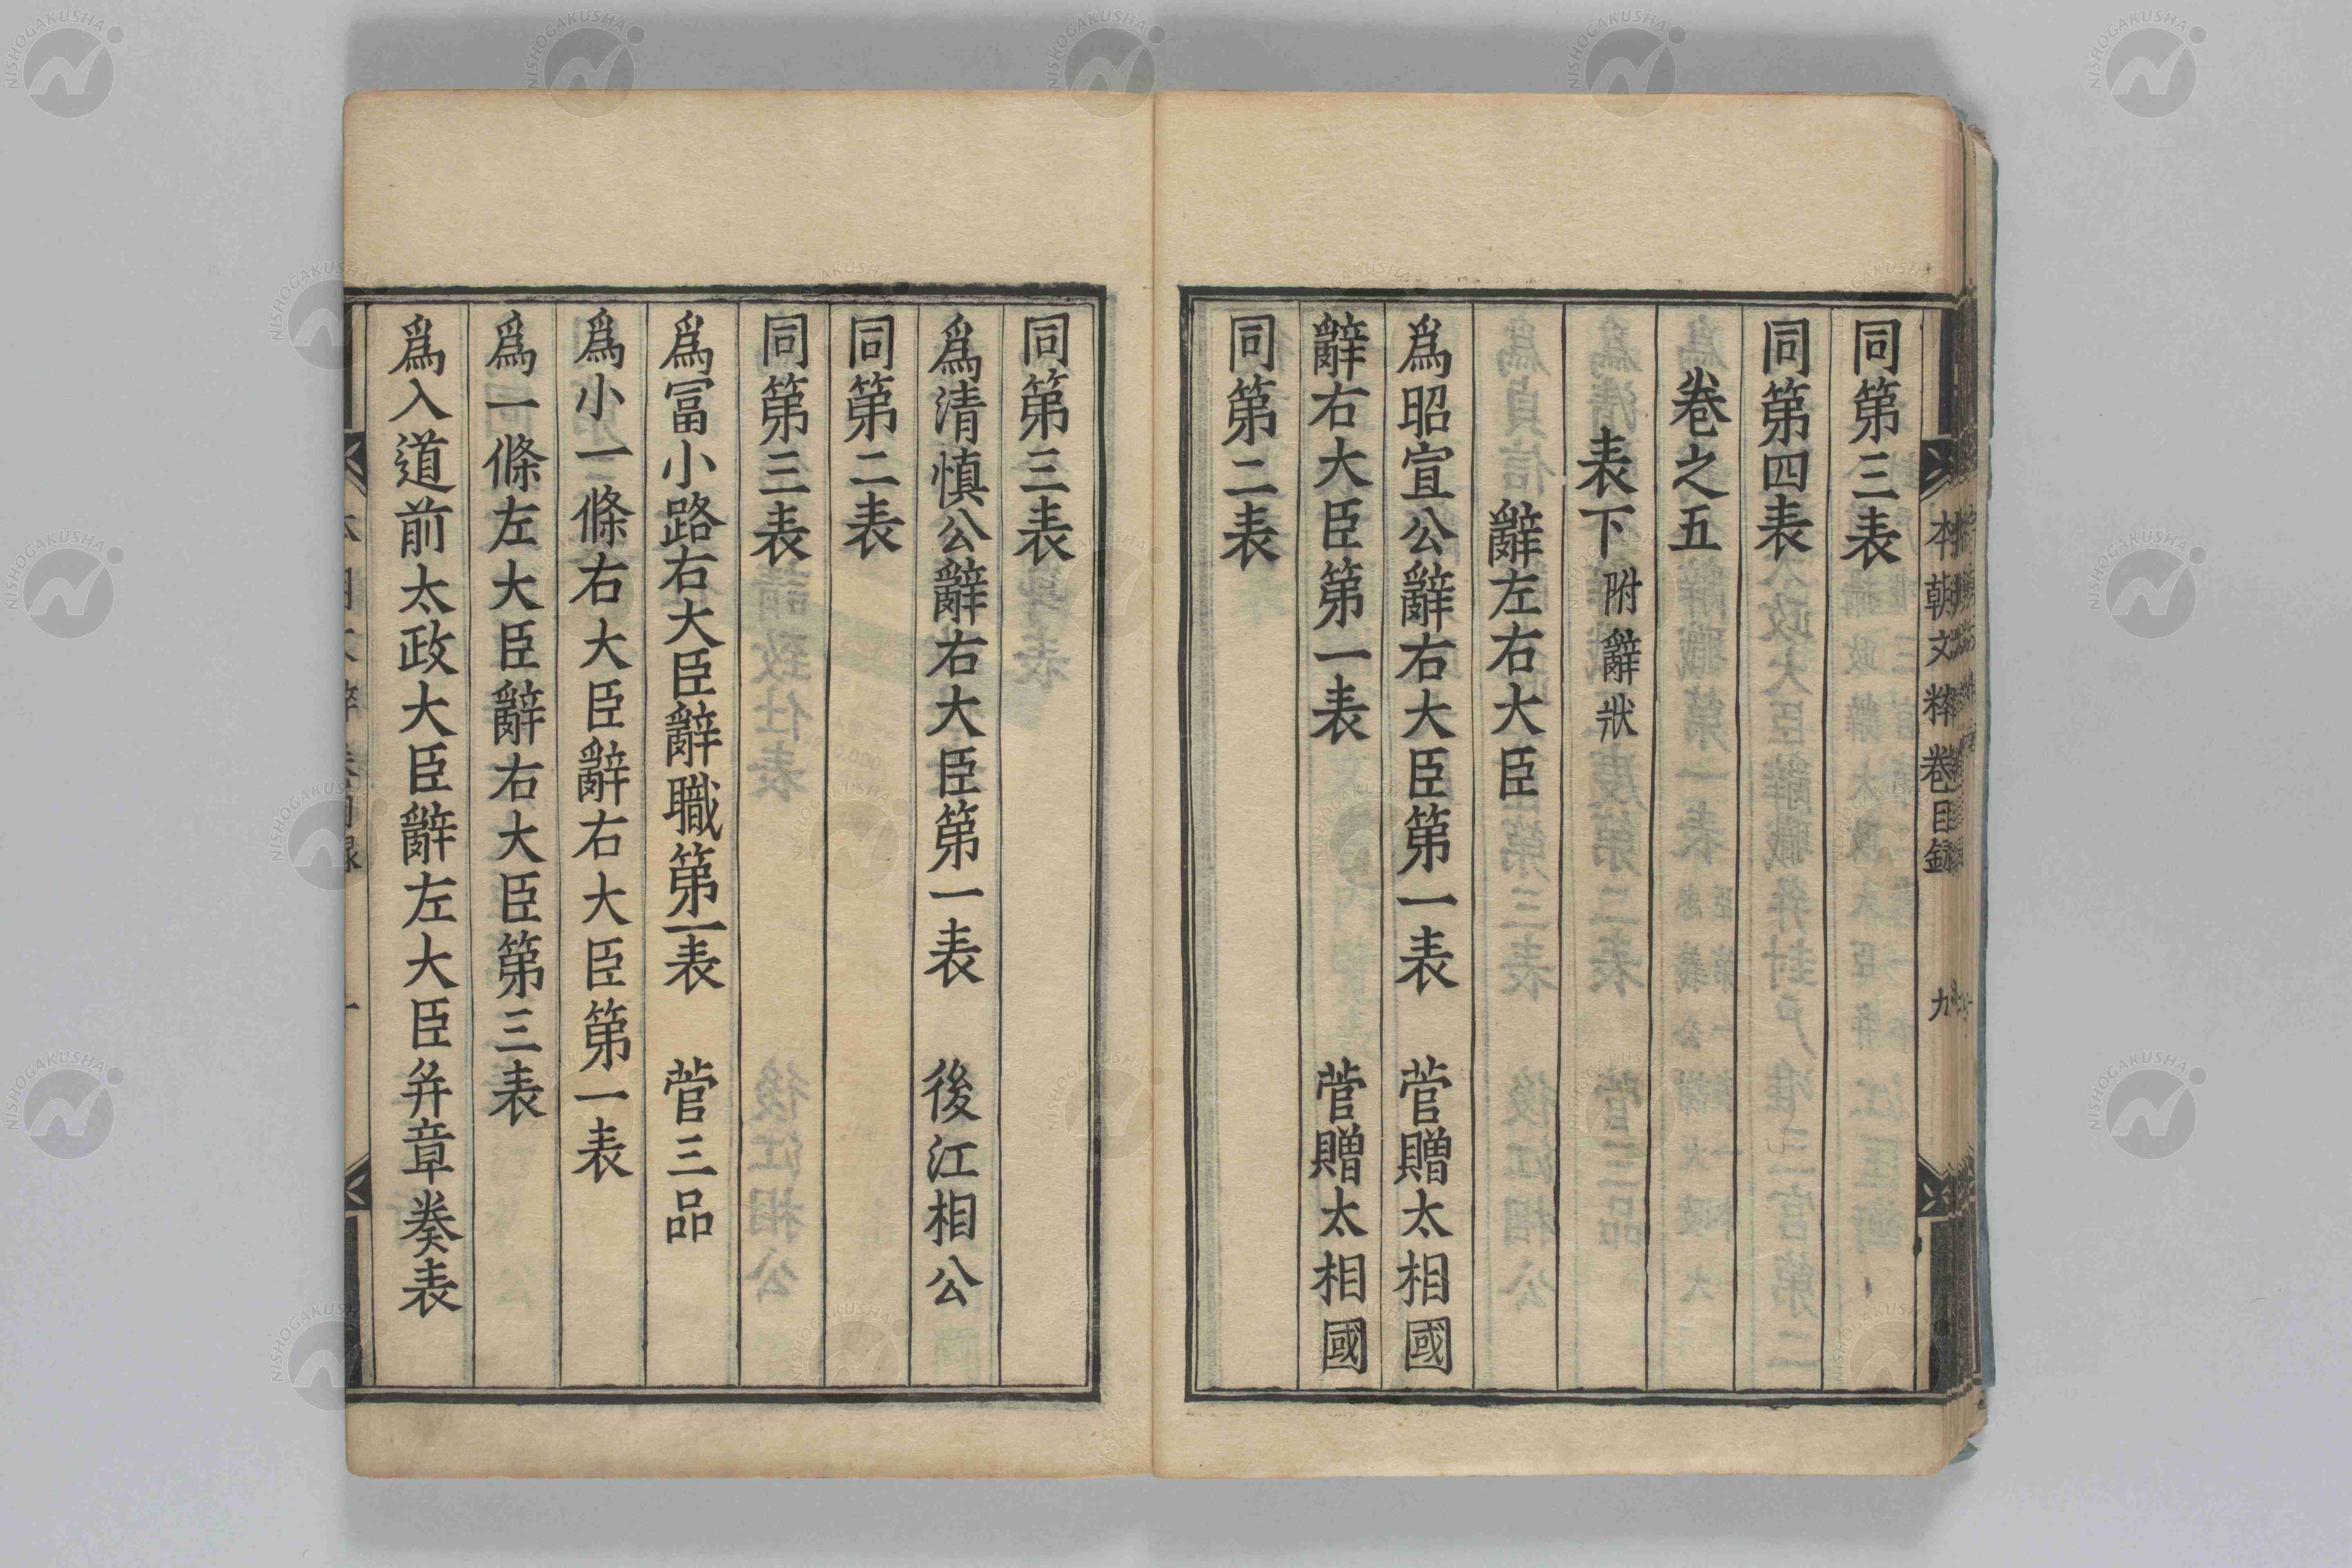 本朝文粹卷目録 九
同第三表
同第四表
卷之五
表下 附辭狀
辭左右大臣
爲昭宣公辭右大臣第一表 菅贈太相國
辭右大臣第一表 菅贈太相國
同第二表
同第三表
爲清慎公辭右大臣第一表 後江相公
同第二表
同第三表
爲冨小路右大臣辭職第一表 菅三品
爲小一條右大臣辭右大臣第一表
爲一條左大臣辭右大臣第三表
爲入道前太政大臣辭左大臣并章奏表
NISHOGAKUSHA